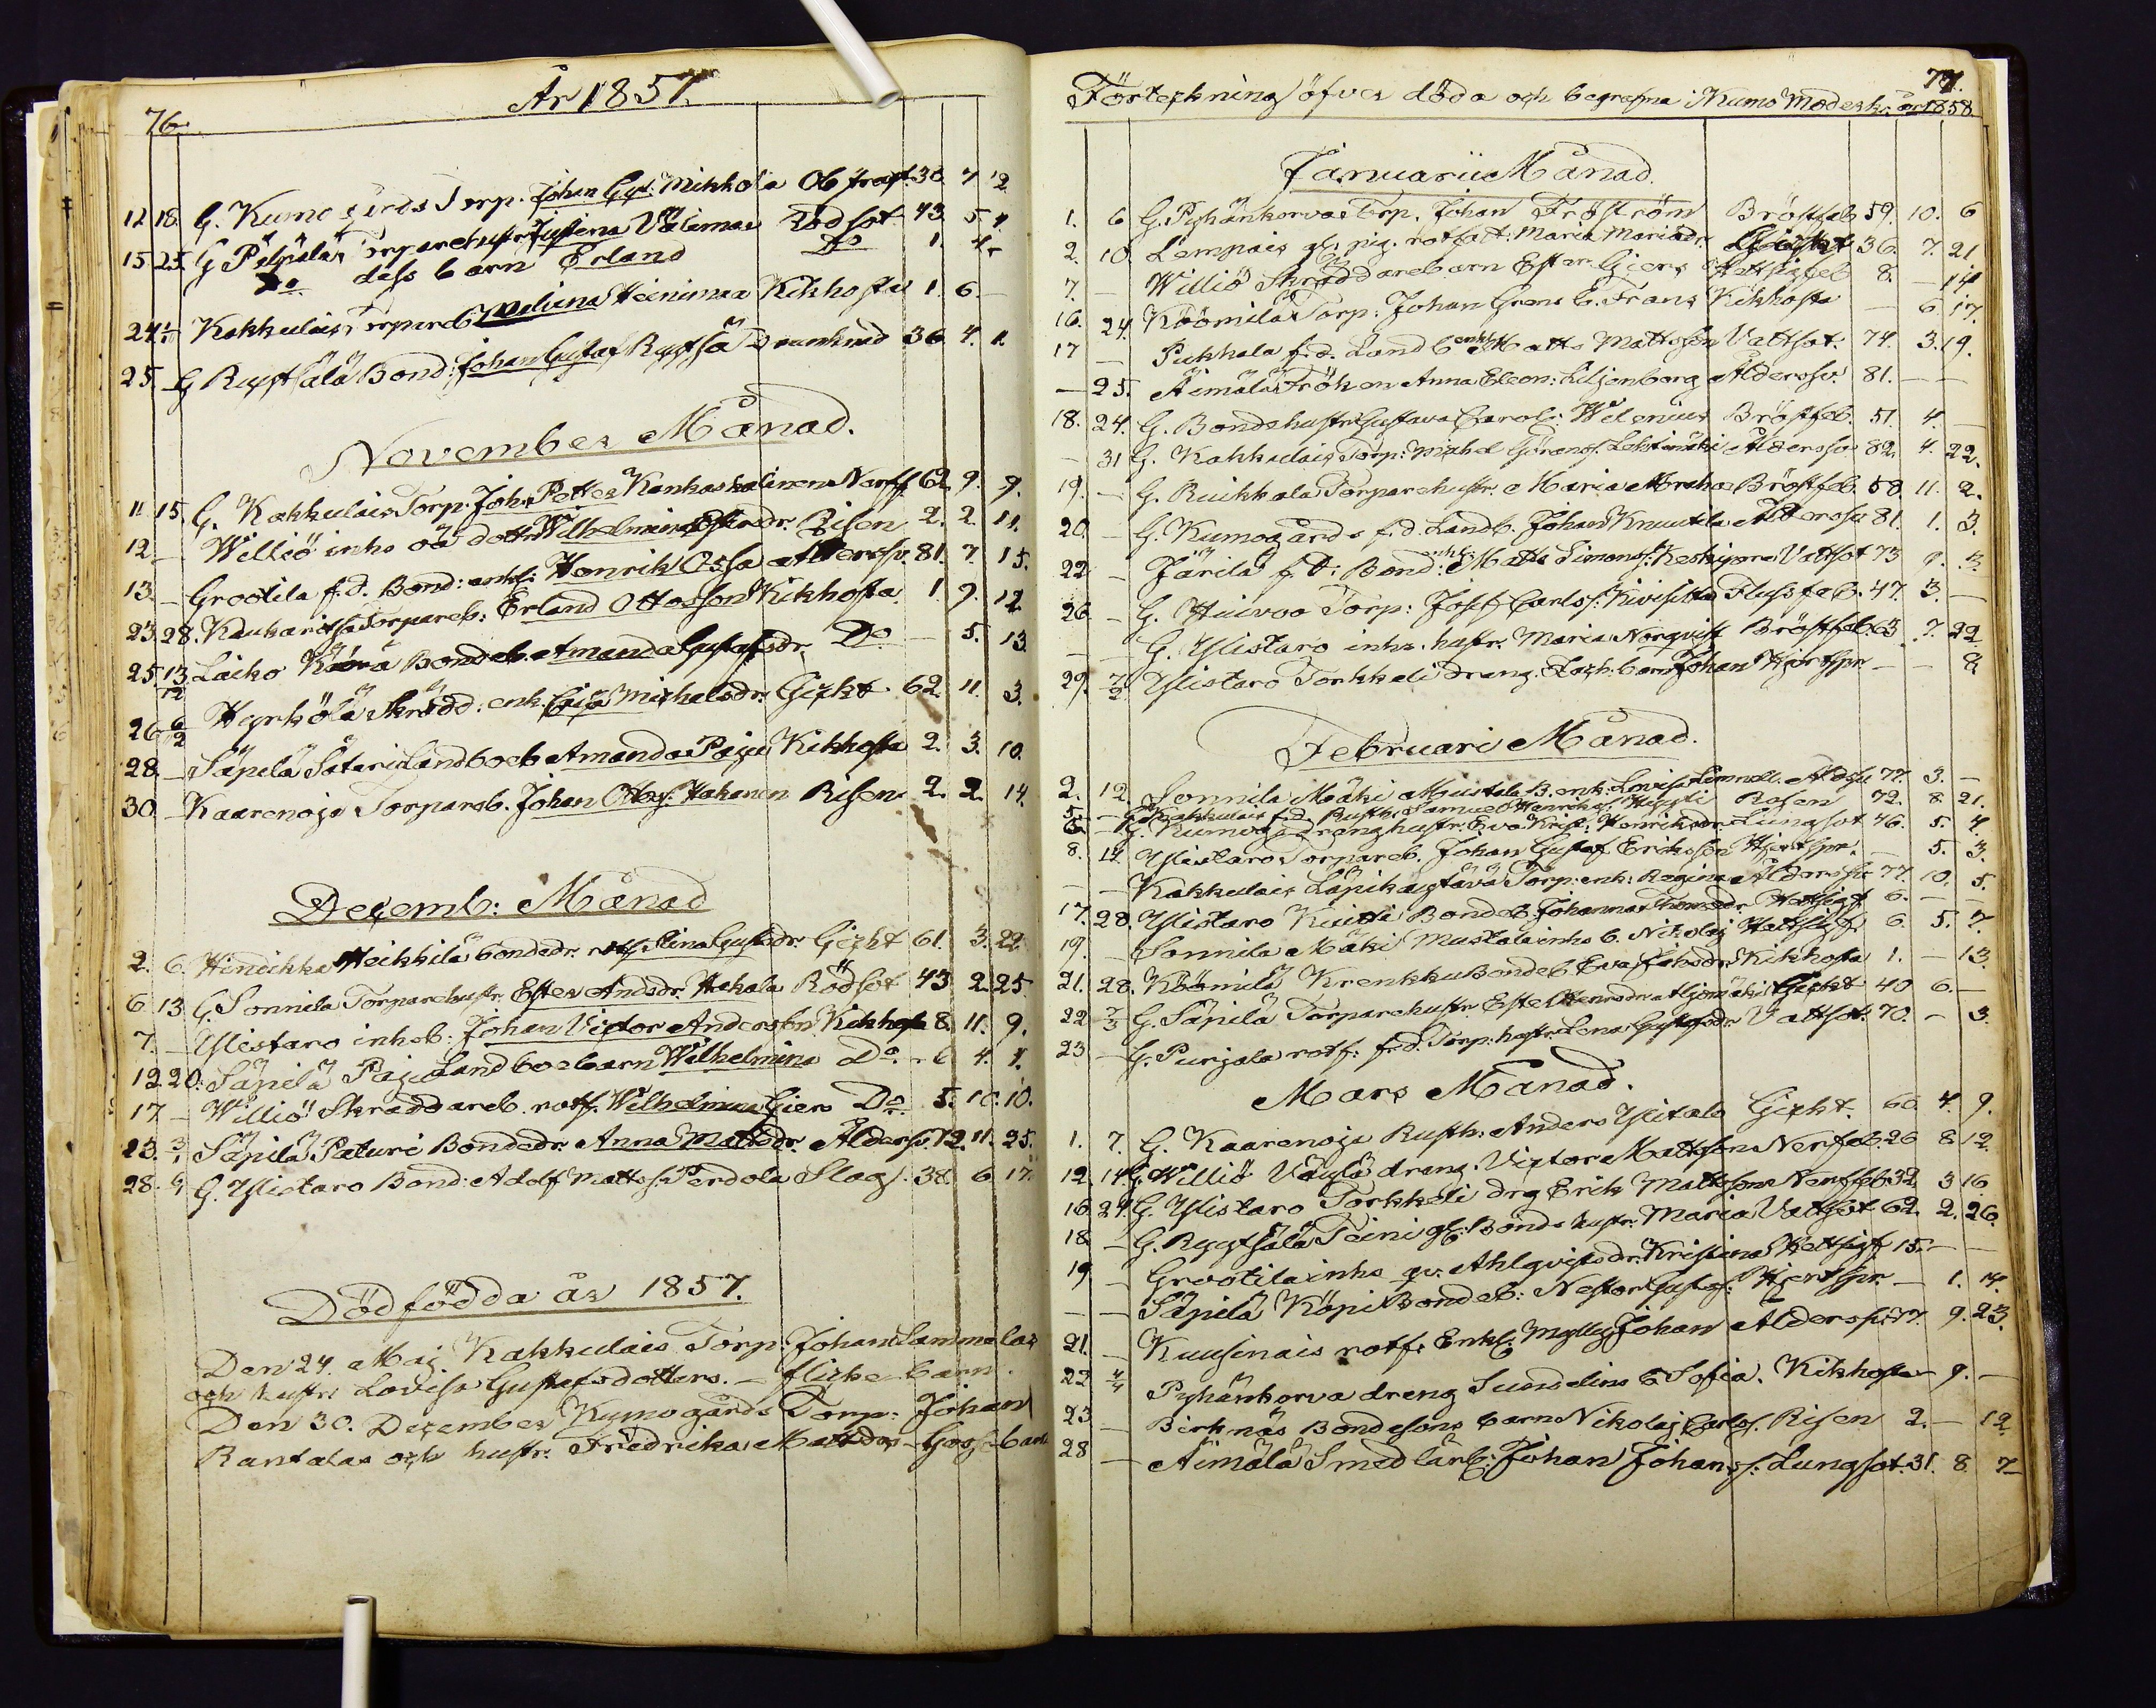 År 1857.
76.
12 18. G. Kumogårds Torp. Johan Gust: Mikkola Obstruct. 30. 7 12
15 25. G Pälpälä Torparehustr Justina Välimaa Rödsot 43. 5. 4
Do dess barn Erland Do 1. 4.
24 Kakkulais Torpareb. Heinimaa Kikhosta 1. 6. –
25. – G Ryytsälä Bond: Johan Gustaf Ryytsä Drunknad 36 4. 1.
November Månad.
11. 15. G. Kakkulais Torp. Joh. Petter Kankashalinen Nerff. 62 9. 9.
12 – Williö inhs oä dottr Wilhelmina Estersdr. Risen 2. 2. 11.
13. – Grootila f.d. Bond: enkl: Henrik Ossa Ålderssv. 81. 7. 15.
23. 28. Kaukaritsa Torpareb: Erland Ottosson Kikhosta 1. 9. 12.
25. 13/12 Laiho Bondeb. Amanda Gustafsdr. Do – 5. 13.
26 6/12 Hyrkölä Skrädd: enk. Caisa Michelsdr. Gickt 62. 11. 3.
28. – Säpilä Säteri Landboeb Amanda Paju Kikhosta 2. 3. 10.
30. – Kaarenoja Torpareb. Johan Hakanen Risen 2. 2. 14.
Decemb: Månad
2. 6. Hindikka Heikkilä bondedr. rotf. Stina Gustsdr. Gickt 61. 3. 22.
6 13 G. Sonnila Torparehustr. Ester Andsdr. Hakala Rödsot 43 2. 25.
7. – Ylistaro inheb: Johan Victor Andersson Kikhosta 8. 11. 9.
12. 20. Säpilä Paju Landboebarn Wilhelmina Do – 6 4. 1.
17 – Williö Skreddareb. rotf. Wilhelmina Giers Do 5. 10. 10.
23. 3/1 Säpilä Paturi Bondedr. Anna Mattsdr. Åldersv. 72. 11. 25.
28. G. Ylistaro Bond: Adolf Mattss. Perdola Slag. 38. 6 17.
Dödfödda år 1857.
Den 24. Maj. Kakkulais Torp: Johan Sammalas
och hustr: Lovisa Gustafsdotters. – flickebarn.
Den 30. December Kumogårds Torp: Johan
Rantalas och hustr: Fredrika Mattsdrs – Gossebarn
77.
Förteckning öfver döda och begrafna i Kumo Moderk: år 1858.
Januarii Månad.
1. 6 G. Pyhänkorvas Torp. Johan Fröström Bröstfeb 59. 10. 6
2. 10. Lempais gl. pig. rotfatt: Maria Mariädr. 36. 7. 21.
7. – Williö Skräddarebarn Ester Giers Hetsigfeb 8. – 14
16. 24. Köömilä Torp: Johan Grens b. Frans Kikhosta – 6 17.
17 – Pukkala f.d. Landb enkl Matts Mattsson Vattsot. 74. 3. 19.
– 25. Äimälä Fröken Anna Eleon: Liljenborg Ålderssv. 81. – –
18. 24. G. Bondehustr Gustava Carol: Wilenius Bröstfeb. 51. 4. –
– 31 G. Kakkulais Torp: Michel Göranss. Lehtimäki Ålderssv 82. 4. 22.
19. – G. Ruikkala Torparehustr. Maria Bröstfeb. 58. 11. 2.
20. – G. Kumogårds f.d. Landb. Johan Knuutila Ålderssv 81. 1. 3.
22 – Järilä f.d. Bond: enkl. Matts Simonss. Vattsot 73 9. 3.
26 – G. Huivoo Torp: Josef Carlss: Kivisilta Flussfeb. 47. 3. –
– – G. Ylistaro inhs. hustr. Maria Norqvist Bröstfeb. 63 7. 22
29. 7/2 Ylistaro Torkkeli dreng. barn Johan Hjertspr – – 8.
Februari Månad.
2. 12. Sonnila Mäki Mustala B. enk: Lovisa Ålderssv 77. 3. –
5. – G. Kakkulais f.d. Rusth: Samuel Henrikss. Rosen 72. 8. 21.
G. Kumog. Dränghustr: Eva Krist: Henriksdr. Lungsot 46. 5. 4.
8. 14. Ylistaro Torpareb. Johan Gustaf Eriksson Hjertspr. – 5. 3.
– – Kakkulais Torp: enk: Regina Ålderssv 77. 10. 5.
17. 28. Ylistaro Kuitti Bondeb. Johanna Thomedr. Hetsigf 6. – –
19. – Sonnila Mäki Mustala inhs b. Nikolaj Hetsigf. 6. 5. 7.
21. 28. Köömilä Krenkku Bondeb. Eva Johsdr. Kikhosta 1. – 13.
22 7/3 G. Säpilä Torparehustr Ester Henrsdr Gickt 40 6. –
23 – G. Purjala rotf: f.d. Torp: hustr. Lena Gustafsdr. Vattsot. 70. – 3.
Mars Månad.
1. 7. G. Kaarenoja Rusth: Anders Ylitalo Gickt. 60. 4. 9.
12. 14. G. Williö Väylä dreng. Victor Mattsson Nerffeb. 26 8. 12
16. 24. G. Ylistaro Torkkeli drg Erik Mattsson Nerffeb. 32 3 16.
18 – G. Ryytsälä Teini gl: Bonde hustr. Maria Vattsot 62. 2. 26.
19 – Grootila inhs qv. Ahlqvists dr. Kristina Hetsigf 15. – –
– – Säpilä Köpi Bondeb: Nestor Gustafs. Hjertspr – 1. 14.
21. – Kuusinais rotf. Enkl: Mylly Johan Åldersv. 77. 9. 23.
22 4/4 Pyhänkorva dreng Sundelins b Sofia. Kikhosta – 9. –
23 – Birknäs Bondesons barn Nikolaj Carlss. Risen 2. – 12.
28 – Äimälä Smedlärl: Johan Johanss: Lungsot. 31. 8. 7